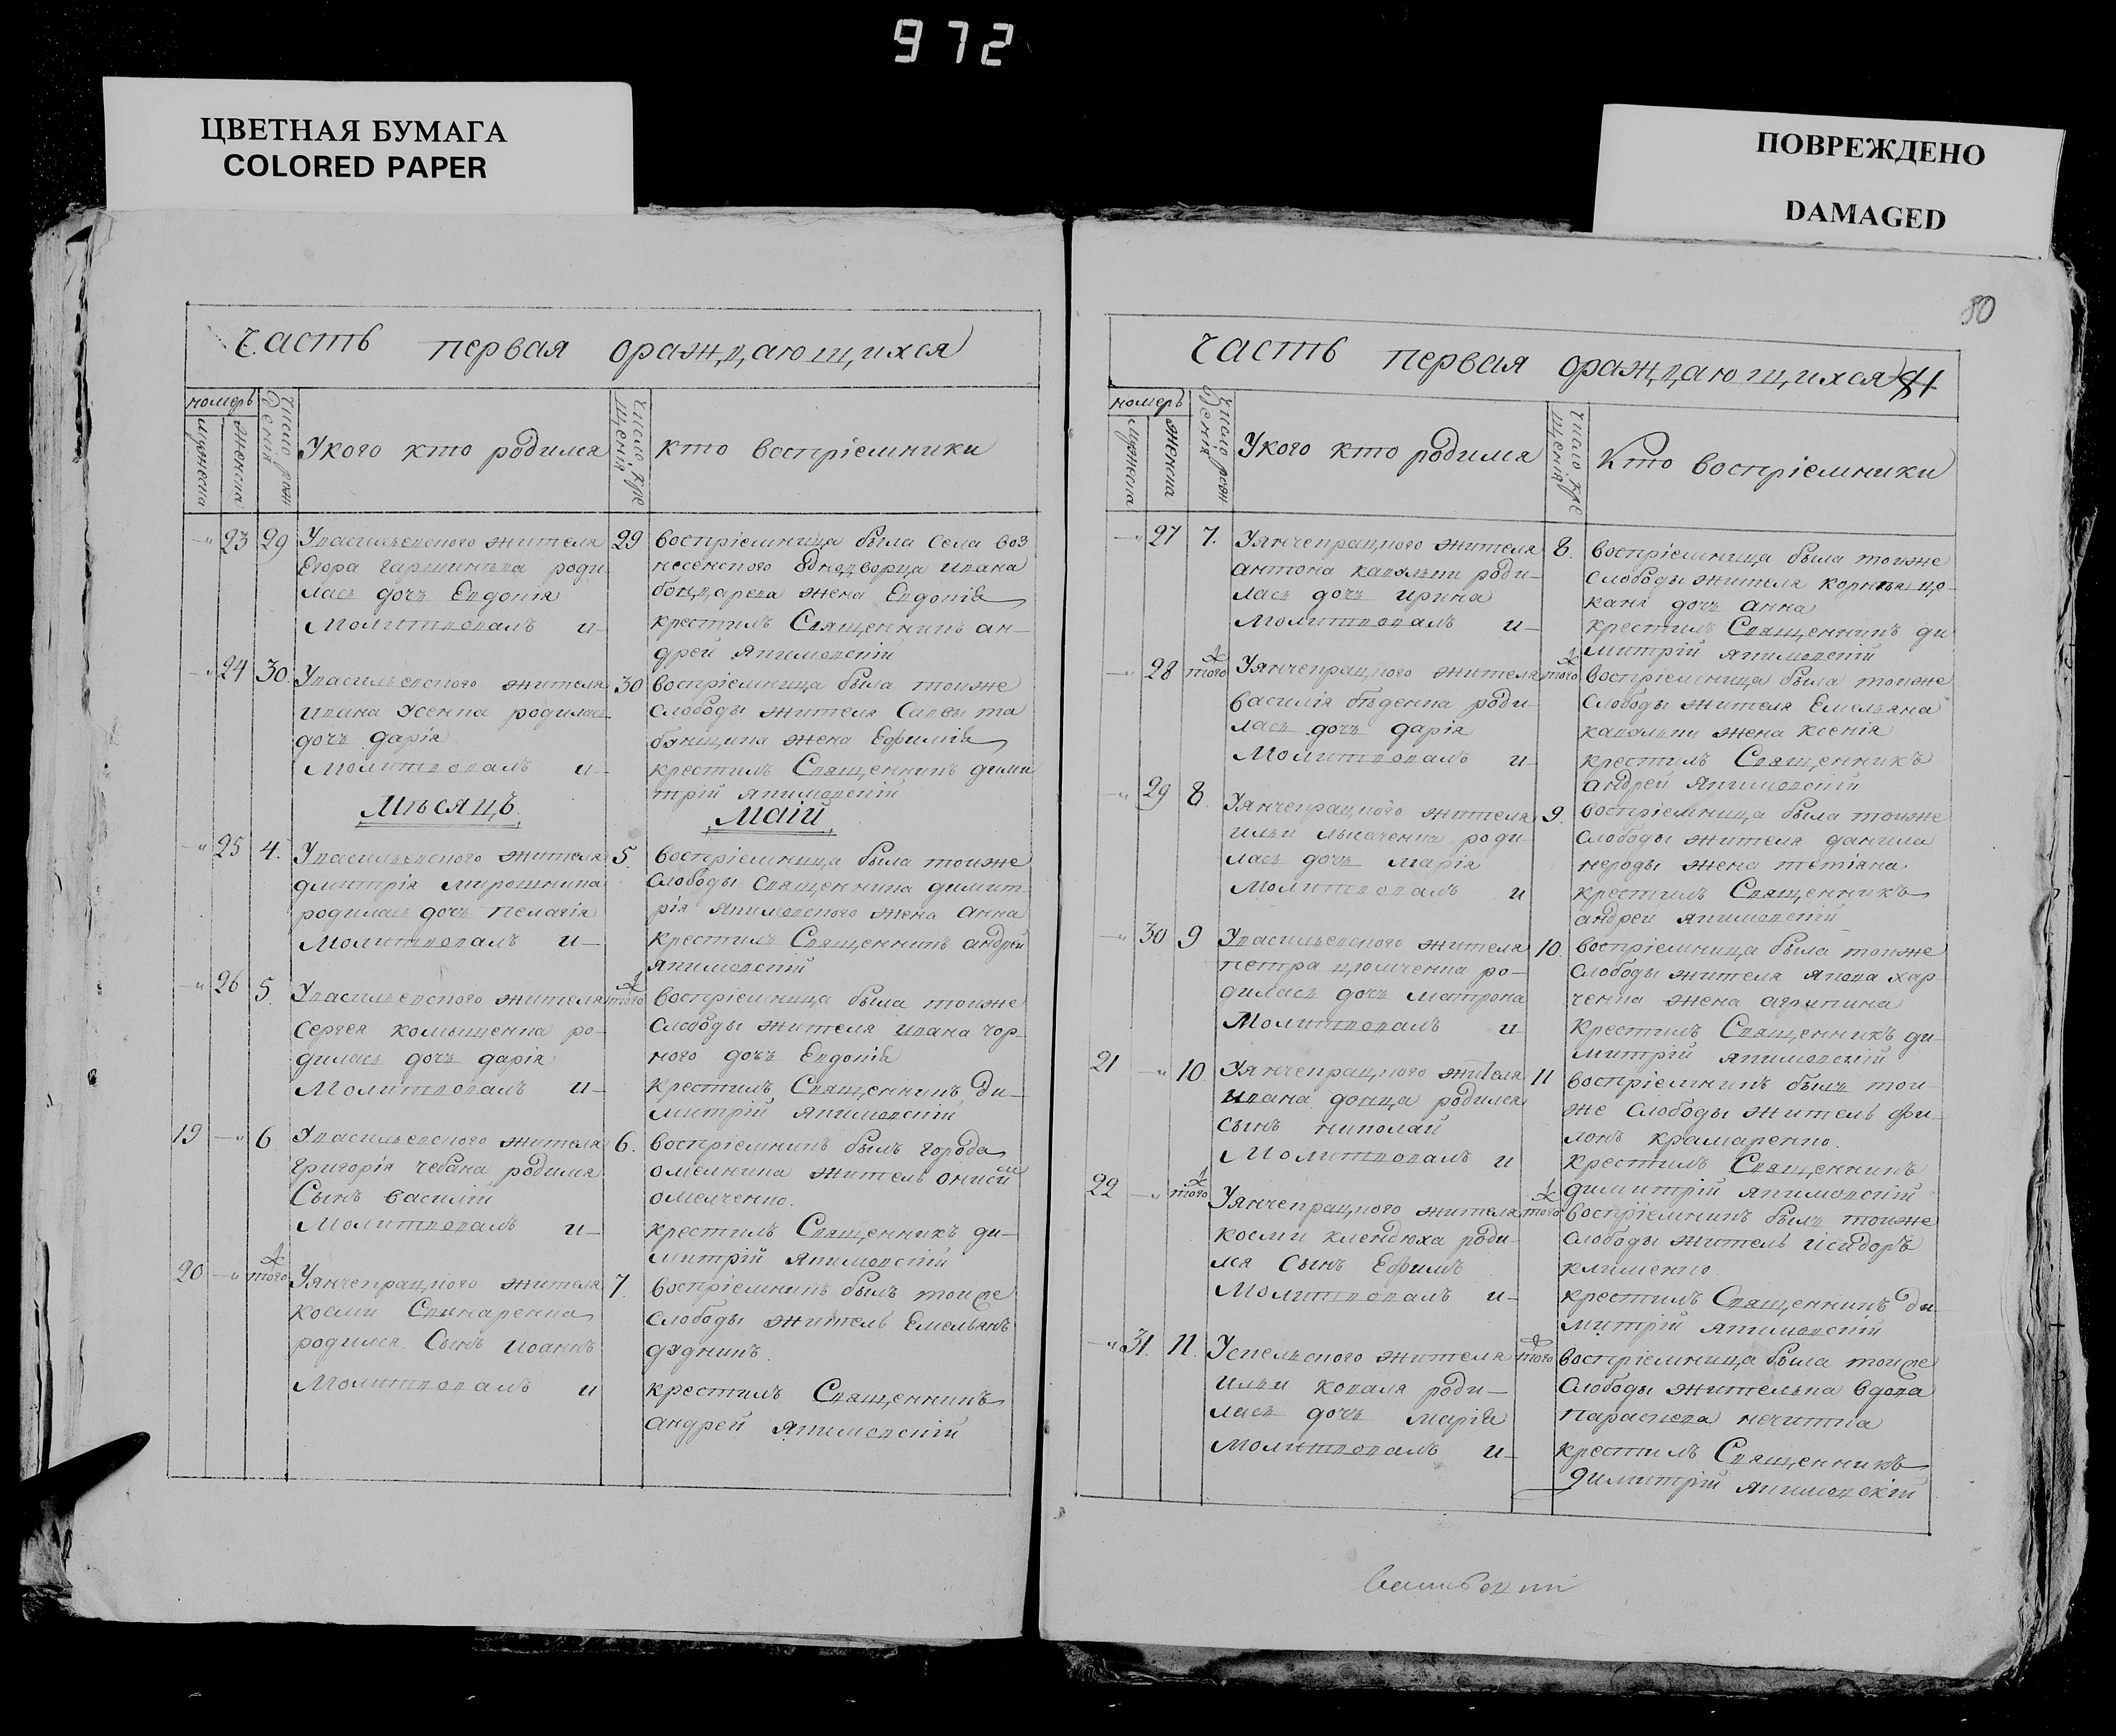 972
ЦВЕТНАЯ БУМАГА
COLORED PAPER
ПОВРЕЖДЕНО
DAMAGED
80
часть первая ораждающихся
номеръ
мужеска
женска
число рож
денія
Укого кто родился
число кре
щенія
кто воспріемники
23 29 Увасильевского жителя
Егора гаршинева роди
лась дочь Евдокія
Молитвовалъ и
29 воспріемница была Села воз
несенского Однодворца ивана
бондарева жена Евдокія
крестилъ Священникъ ан-
дрей Якимовскій
24 30. Увасильевского жителя
ивана Усенка родилась
дочь дарія
Молитвовалъ и
30 воспріемница была тоиже
слободы жителя Савы та
бянщика жена Ефимія
крестилъ Священникъ дими
трій якимовскій
Мѣсяцъ Маій
25 4. Увасильевского жителя
дмитрія мирошника
родилась дочь пелагія
Молитвовалъ и
5. воспріемница была тоиже
слободы священника димит-
рія якимовского жена анна
крестилъ Священникъ андрей
якимовскій
26 5. Увасильевского жителя
сергея комышенка ро-
дилась дочь дарія
Молитвовалъ и
того воспріемница была тоиже
слободы жителя ивана чор-
ного дочь Евдокія
крестилъ Священникъ ди-
митрій якимовскій
19 6 Увасильевского жителя
григорія чебана родился
Сынъ василій
Молитвовалъ и
6. воспріемникъ былъ города
омельника житель онисій
омелченко.
крестилъ Священникъ ди-
митрій якимовскій
20 того Уянчекрацкого жителя
космы Свинаренка
родился Сынъ иоаннъ
Молитвовалъ и
7. воспріемникъ былъ тоиже
слободы житель Емельянъ
дядникъ.
крестилъ Священникъ
андрей якимовскій
часть первая ораждающихся 81
номеръ
мужеска
женска
число рож
денія
Укого кто родился
число кре
щенія
Кто воспріемники
27 7. Уянчекрацкого жителя
антона ковальки роди-
лась дочь ирина
Молитвовалъ и
8. воспріемница была тоиже
слободы жителя корнея цо-
каня дочь анна
крестилъ Священникъ ди
митрій якимовскій
28 того Уянчекрацкого жителя
василія беденка роди-
лась дочь дарія
Молитвовалъ и
того воспріемница была тоиже
слободы жителя Емельяна
ковальки жена ксенія
крестилъ Священникъ
андрей якимовскій
29 8. Уянчекрацкого жителя
ильи лысаченка роди
лась дочь марія
Молитвовалъ и
9. воспріемница была тоиже
слободы жителя данила
нероды жена тетіана
крестилъ Священникъ
андрей якимовскій
30 9 Увасильевского жителя
петра цюмченка ро-
дилась дочь матрона
Молитвовалъ и
10. воспріемница была тоиже
слободы жителя якова хар
ченка жена агрипина
крестилъ Священникъ ди-
митрій якимовскій
21 10. Уянчекрацкого жителя
ивана донца родился
сынъ николай
Молитвовалъ и
11 воспріемникъ былъ тои-
же слободы житель фи-
лонъ крамаренко.
крестилъ Священникъ
димитрій якимовскій
22 того Уянчекрацкого жителя
космы клендюха роди
лся сынъ Ефимъ
Молитвовалъ и
того воспріемникъ былъ тоиже
слободы житель исидоръ
клименко.
крестилъ Священникъ ди-
митрій якимовскій
31. 11. Успельского жителя
ильи коваля роди-
лась дочь марія
Молитвовалъ и
того воспріемница была тоиже
слободы жителька вдова
параскева нечитка
крестилъ Священникъ
димитрій якимовскій